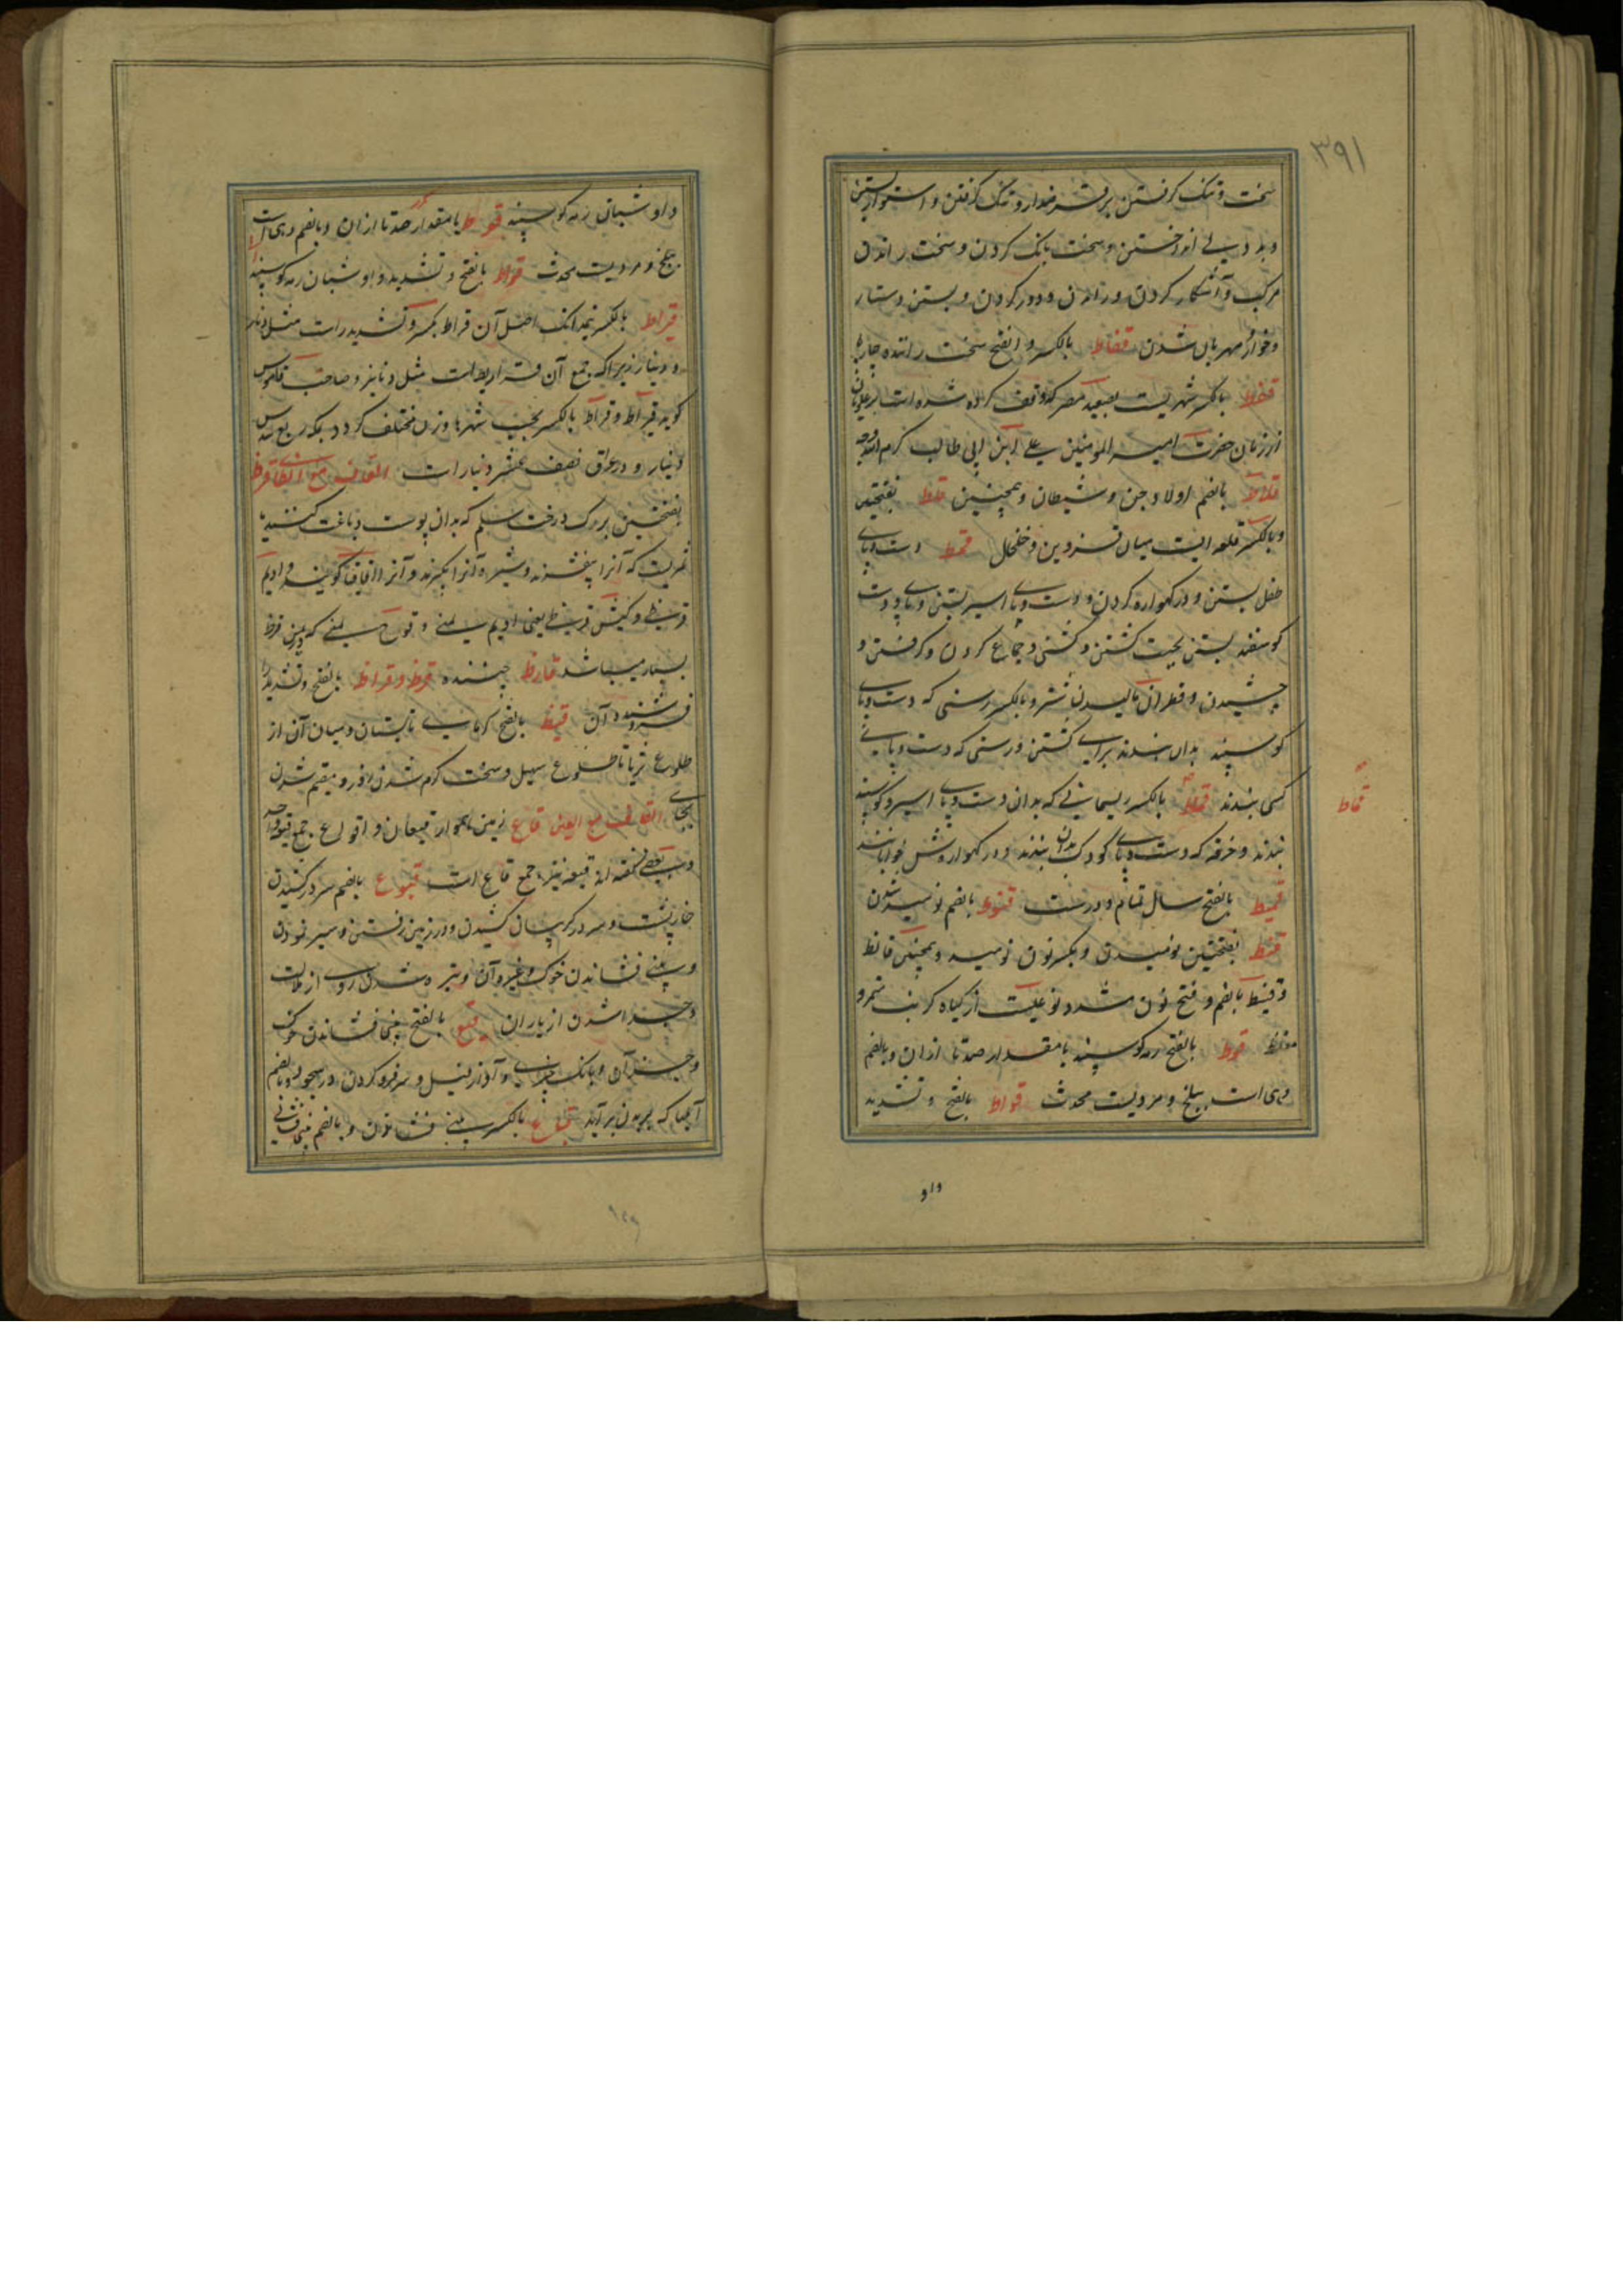 ۳۹۱
سخت و تنک کرفتن بر قرضدار و تنک کرفتن و استوار بستن
و بدو پی انداختن و سخت بانک کردن و سخت راندن
مرکب و آشکار کردن و راندن و دور کردن و بستن دستار
و خواز مهربان شدن قعّاط بالکسر و الفتح سخت راننده چارپا
بالکسر شهریست بصعید مصر که وقف کرده شده است بر علویان
از زمان حضرت امیر المومنین علی ابن ابی طالب کرم الله وجهه
قلاط بالضم اولاد جن و شیطان و همچنین قلط بفتحتین
و بالکسر قلعه ایست میان قزوین و خلخال قمط دست و پای
طفل بستن و در کهواره کردن و دست و پای اسیر بستن و پای و دست
کوسفند بستن بجهت کشتن و کشنی و جماع کردن و کرفتن و
چشیدن و قطران مالیدن شتر و بالکسر رسنی که دست و پای
کوسپند بدان بندند برای کشتن و رسنی که دست و پای
کسی بندند قماط بالکسر ریسمانی که بدان دست و پای اسیر و کوسپند
قماط
بندند و خرقه که دست و پای کودک بدان بندند و در کهواره اش خوابانند
قمیط بالفتح سال تمام و درست قنوط بالضم نومید شدن
قنط بفتحتین نومیدن و بکسر نون نومید و همچنین قانط
و قنبیط بالضم و فتح نون مشدد نوعیست از کیاه کرنب
قوط بالفتح رمه کوسپند یا مقدار صد تا ازان و بالضم
دهی است ببلخ و مردیست محدث قواط بالفتح و تشدید
واو
واو شبان رمه کوسپند قوط یا مقدار صد تا ازان و بالضم دهی است
ببلخ و مردیست محدث قواط بالفتح و تشدید واو شبان رمه کوسپند
قیراط بالکسر نیمدانک اصل آن قراط بکسر و تشدید راست مثل دنار
و دینار زیراکه جمع آن قراریط است مثل دنانیر و صاحب قاموس
کوید قیراط و قراط بالکسر بحسب شهرها وزن مختلف کردد بمکه ربع سدس
دینار و در عراق نصف عشر دینار است القاف مع الظا قرظ
بفتحتین برک درخت سلم که بدان پوست دباغت کنند یا
ثمریست که آنرا بیفشرند و شیره آنرا بکیرند و آنرا اقاقیا کویند و ادیم
قرظی و کبش قرظی یعنی ادیم یمنی و قوچ یمنی که در یمن قرظ
بسیار میباشد قارظ چیننده قرظ و قراظ بالفتح و تشدید را
فروشنده آن قیظ بالفتح کرمای تابستان و میان آن از
طلوع ثریا تا طلوع سهیل و سخت کرم شدن روز و مقیم شدن
بجای القاف مع العین قاع زمین هموار قیعان و اقواع جمع قیعه واحد
و بعضی کفته اند قیعه نیز جمع قاع است قبوع بالضم سر درکشیدن
خارپشت و سر در کریبان کشیدن و در زمین رفتن و سیر نمودن
و بینی فشاندن خوک و غیر آن
و جدا شدن از یاران قبع بالفتح بینی فشاندن خوک
و جز آن و بانک خرس و آواز فیل و سر فرو کردن در سجود و بالضم